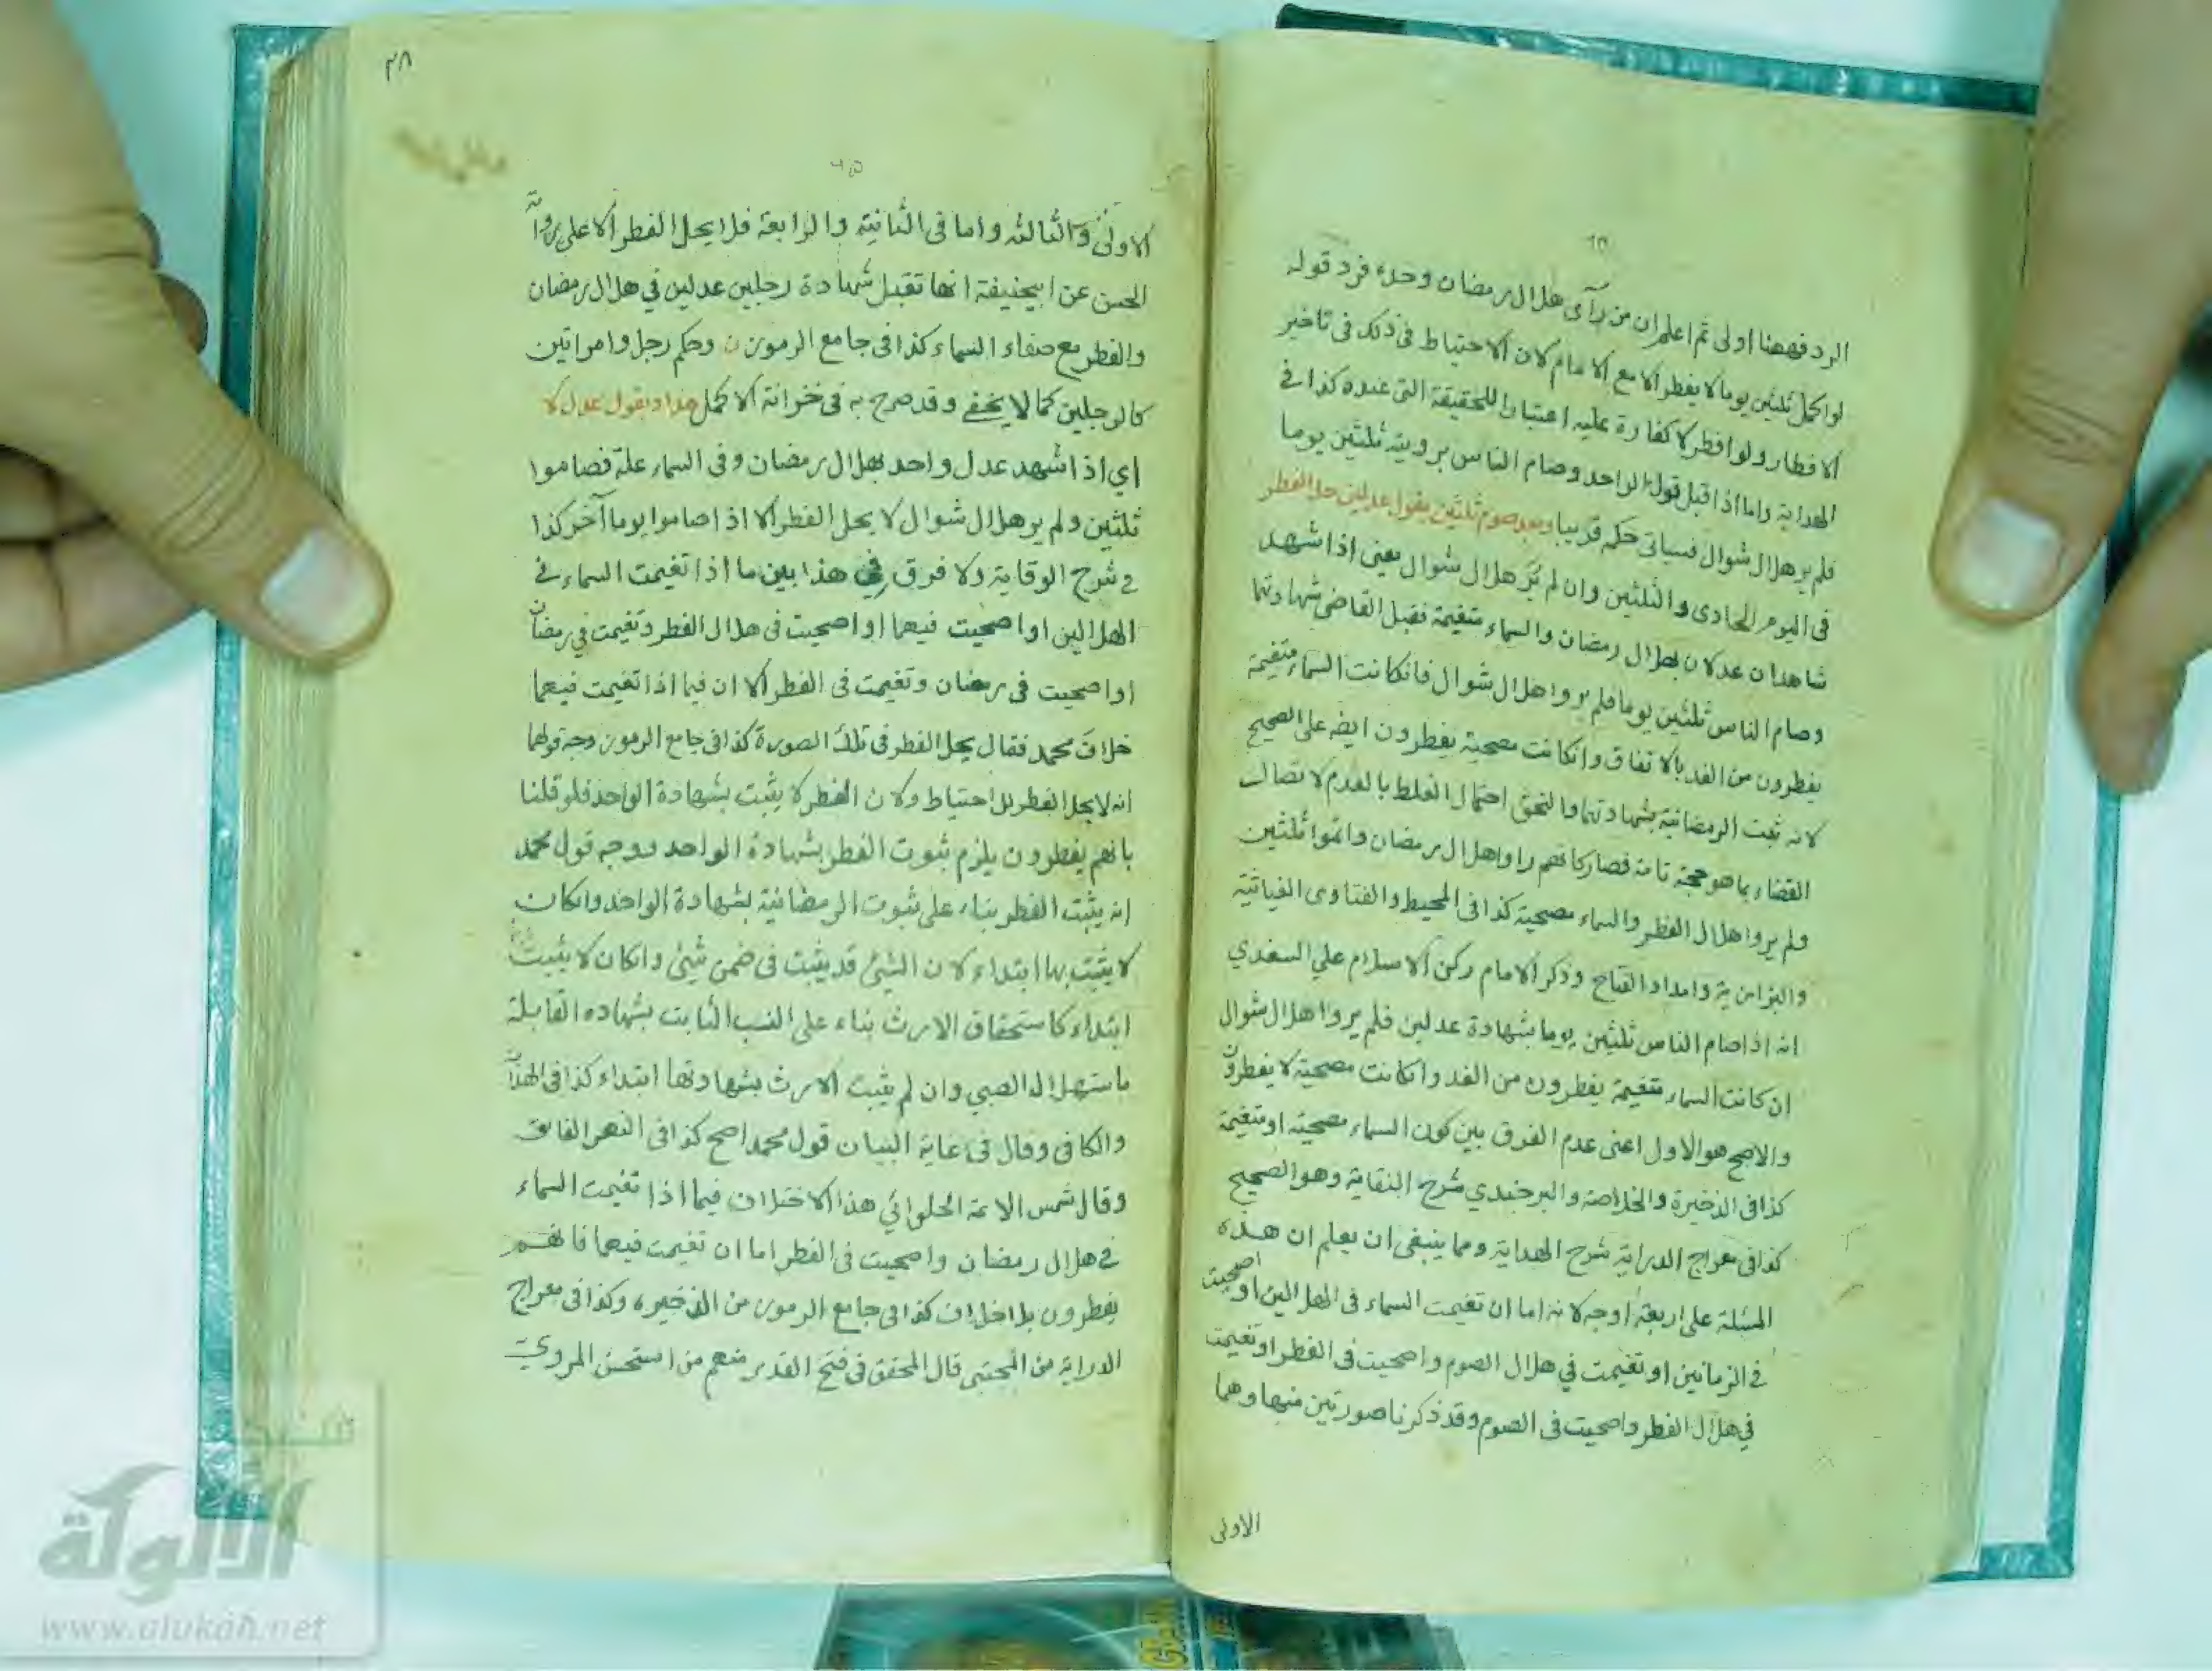 الرد فههنا اولى ثم اعلم ان من رآى هلال رمضان وحده فرد قوله
لو اكمل ثلثين يوما لا يفطر الا مع الامام لان الاحتياط في ذلك في تاخير
الافطار ولو افطر لا كفارة عليه اعتبارا للحقيقة التي عنده كذا في
الهداية واما اذا قبل قول الواحد وصام الناس برويته ثلثين يوما
فلم ير هلال شوال فسياتي حكمه قريبا وبعد صوم ثلثين بقول عدلين حل الفطر
في اليوم الحادي والثلثين وان لم ير هلال شوال يعني اذا شهد
شاهدان عدلان بهلال رمضان والسماء متغيمة فقبل القاضي شهادتهما
وصام الناس ثلثين يوما فلم يروا هلال شوال فان كانت السماء متغيمة
يفطرون من الغد بالاتفاق وان كانت مصحية يفطرون ايضه على الصحيح
لانه ثبت الرمضانية بشهادتهما والتحق احتمال الغلط بالعدم لاتصال
القضاء بما هو حجة تامة فصار كانهم راوا هلال رمضان واتموا ثلثين
ولم يروا هلال الفطر والسماء مصحية كذا في المحيط والفتاوى الغياثية
والبزازية وامداد الفتاح وذكر الامام ركن الاسلام علي السغدي
انه اذا صام الناس ثلثين يوما بشهادة عدلين فلم يروا هلال شوال
ان كانت السماء متغيمة يفطرون من الغد وان كانت مصحية لا يفطرون
والاصح هو الاول اعني عدم الفرق بين كون السماء مصحية او متغيمة
كذا في الذخيرة والخلاصة والبرجندي شرح النقاية وهو الصحيح
كذا في معراج الدراية شرح الهداية ومما ينبغي ان يعلم ان هذه
المسئلة على اربعة اوجه لانه اما ان تغيمت السماء في الهلالين او اصحيت
في الزمانين او تغيمت في هلال الصوم واصحيت في الفطر او تغيمت
في هلال الفطر واصحيت في الصوم وقد ذكرنا صورتين منها وهما
الاولى
٢٨
٦٥
الاولى والثالثه واما في الثانية والرابعة فلا يحل الفطر الا على رواية
الحسن عن ابيحنيفة انها تقبل شهادة رجلين عدلين في هلال رمضان
والفطر مع صفاء السماء كذا في جامع الرموز وحكم رجل وامراتين
كالرجلين كما لا يخفى وقد صرح به في خزانة الاكمل هذا وبقول عدل لا
اي اذا شهد عدل واحد بهلال رمضان وفي السماء علة فصاموا
ثلثين ولم ير هلال شوال لا يحل الفطر الا اذا صاموا يوما آخر كذا
في شرح الوقاية ولا فرق في هذا بين ما اذا تغيمت السماء في
الهلالين او اصحيت فيهما او اصحيت في هلال الفطر وتغيمت في رمضان
او اصحيت في رمضان وتغيمت في الفطر الا ان فيما اذا تغيمت فيهما
خلاف محمد فقال يحل الفطر في تلك الصورة كذا في جامع الرموز وجه قولهما
انه لا يحل الفطر للاحتياط ولان الفطر لا يثبت بشهادة الواحد فلو قلنا
بانهم يفطرون يلزم ثبوت الفطر بشهادة الواحد ووجه قول محمد
انه يثبت الفطر بناء على ثبوت الرمضانية بشهادة الواحد وان كان
لا يثبت بها ابتداء لان الشيئ قد يثبت في ضمن شيئ وان كان لا يثبت
ابتداء كاستحقاق الارث بناء على النسب الثابت بشهادة القابلة
باستهلال الصبي وان لم يثبت الارث بشهادتها ابتداء كذا في الهداية
والكافي وقال في غاية البيان قول محمد اصح كذا في النهر الفائق
وقال شمس الائمة الحلوائي هذا الاختلاف فيما اذا تغيمت السماء
في هلال رمضان واصحيت في الفطر اما ان تغيمت فيهما فانهم
يفطرون بلا اختلاف كذا في جامع الرموز من الذخيرة وكذا في معراج
الدراية من المجتبى قال المحقق في فتح القدير منهم من استحسن المروي
شبكة
الألوكة
www.alukah.net